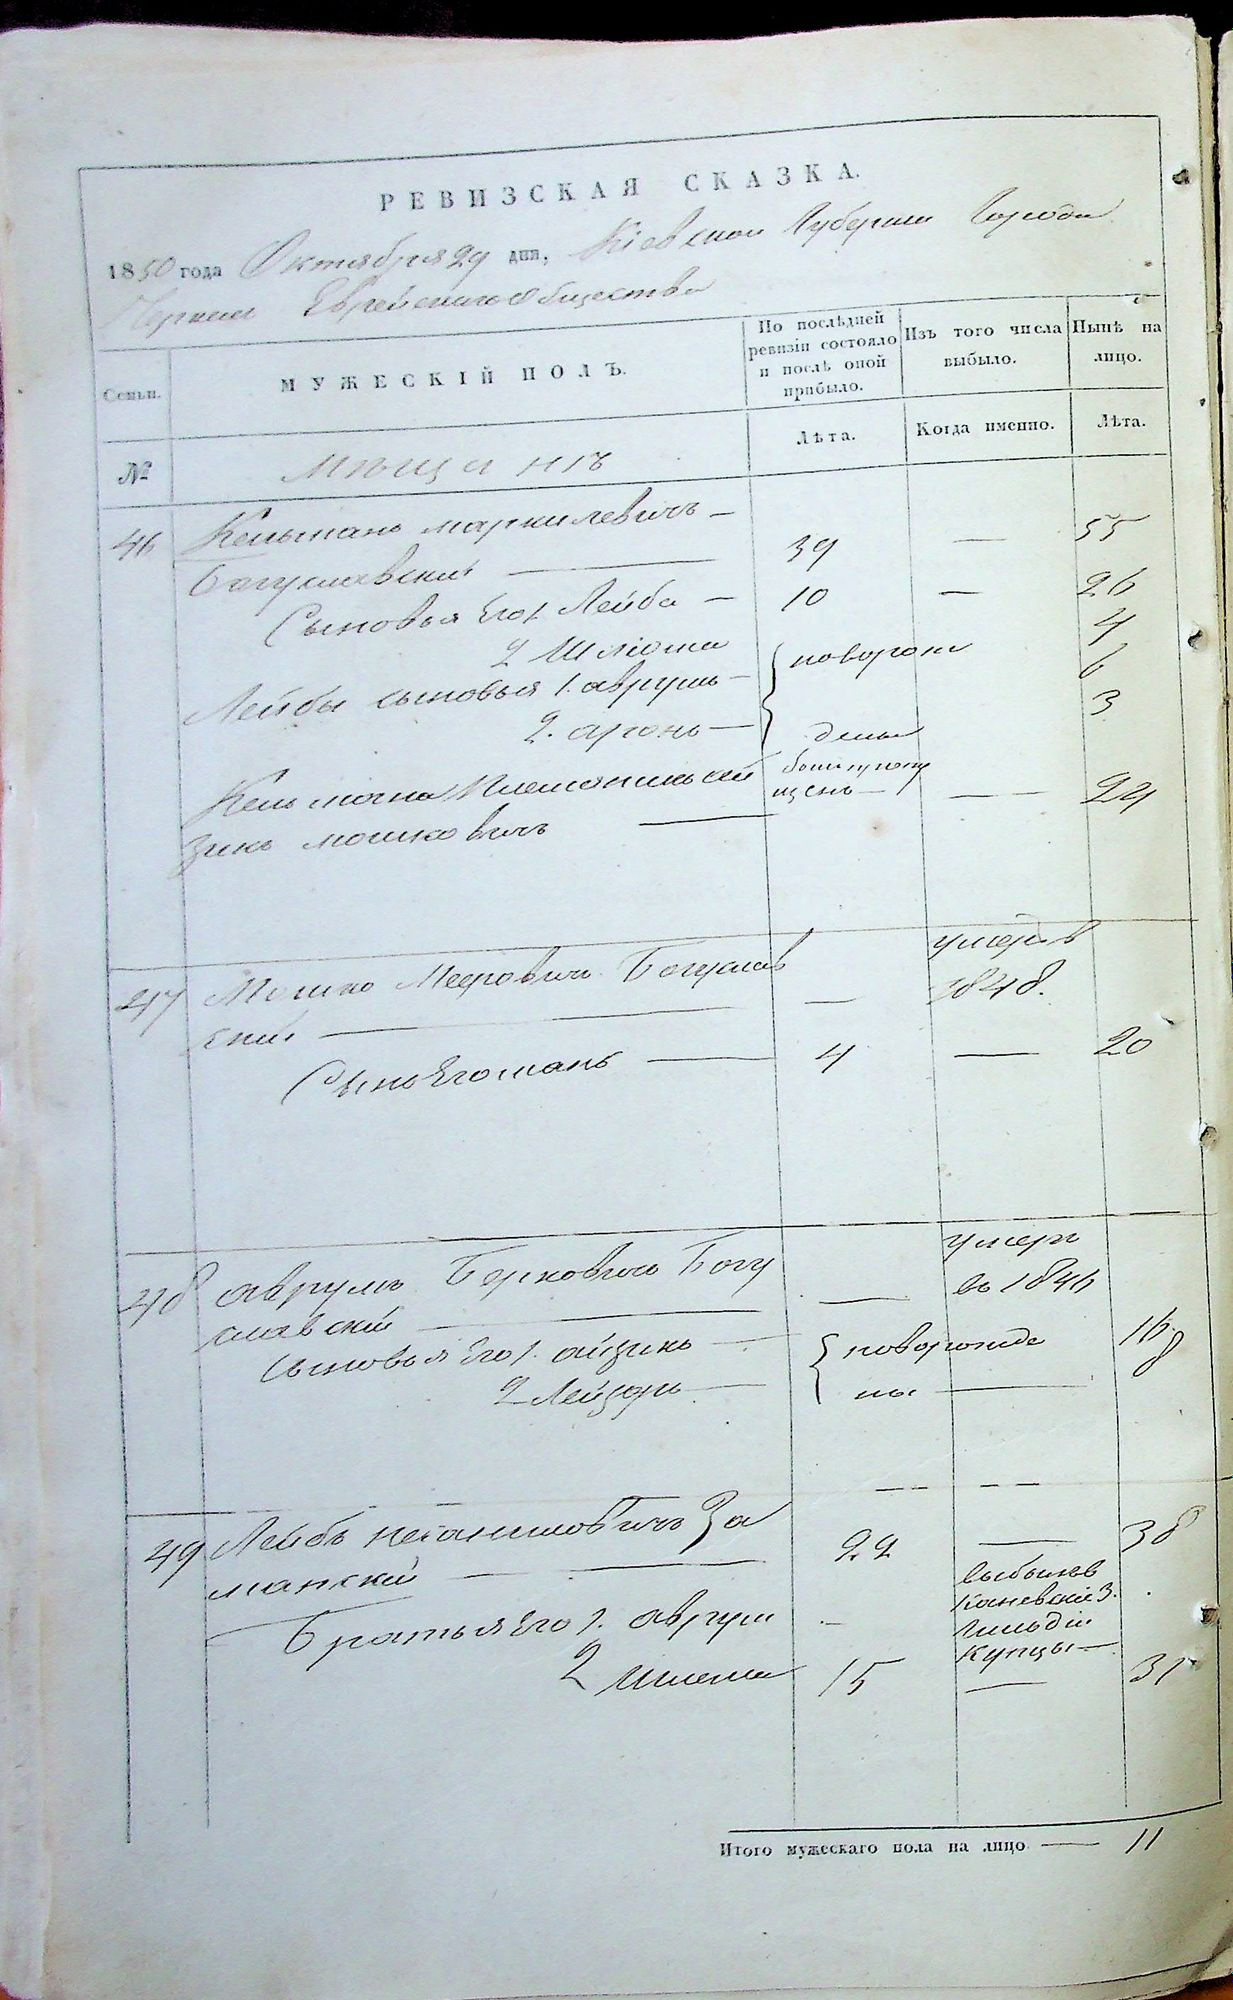 РЕВИЗСКАЯ СКАЗКА.
1850 года Октября 29 дня, Кіевской Губерніи Города
Черкасъ Еврейскаго Общества
Семьи. МУЖЕСКІЙ ПОЛЪ. По послѣдней ревизіи состояло и послѣ оной прибыло. Изъ того числа выбыло. Нынѣ на лицо.
№ Мѣщанъ Лѣта. Когда именно. Лѣта.
46 Кельманъ Маркилевичъ —
Богуславскій — 39 — 55
Сыновья Его 1. Лейба — 10 — 26
2 Шліома новорож 4
Лейбы сыновья 1. аврумъ — 6
2. аронъ — дены 3
Кельмана Племянникъ ай
зикъ мошковичъ — былъ пропу
щенъ — — 24
47 Мошко Мееровичъ Богуслав
скій — — умеръ в
1848.
Сынъ Его манъ — 4 — 20
48 аврумъ Берковичъ Богу
славскій — — умеръ
въ 1846
Сыновья Его 1. айзикъ — новорожде 16
2 Лейзоръ — ны — 8
49 Лейбъ За
манскій — 22 — 38
Братья Его 1. аврум - выбылъ в
Каневскіе 3.
Гильдіи
Купцы —
2 15 — 31
Итого мужескаго пола на лицо — 11